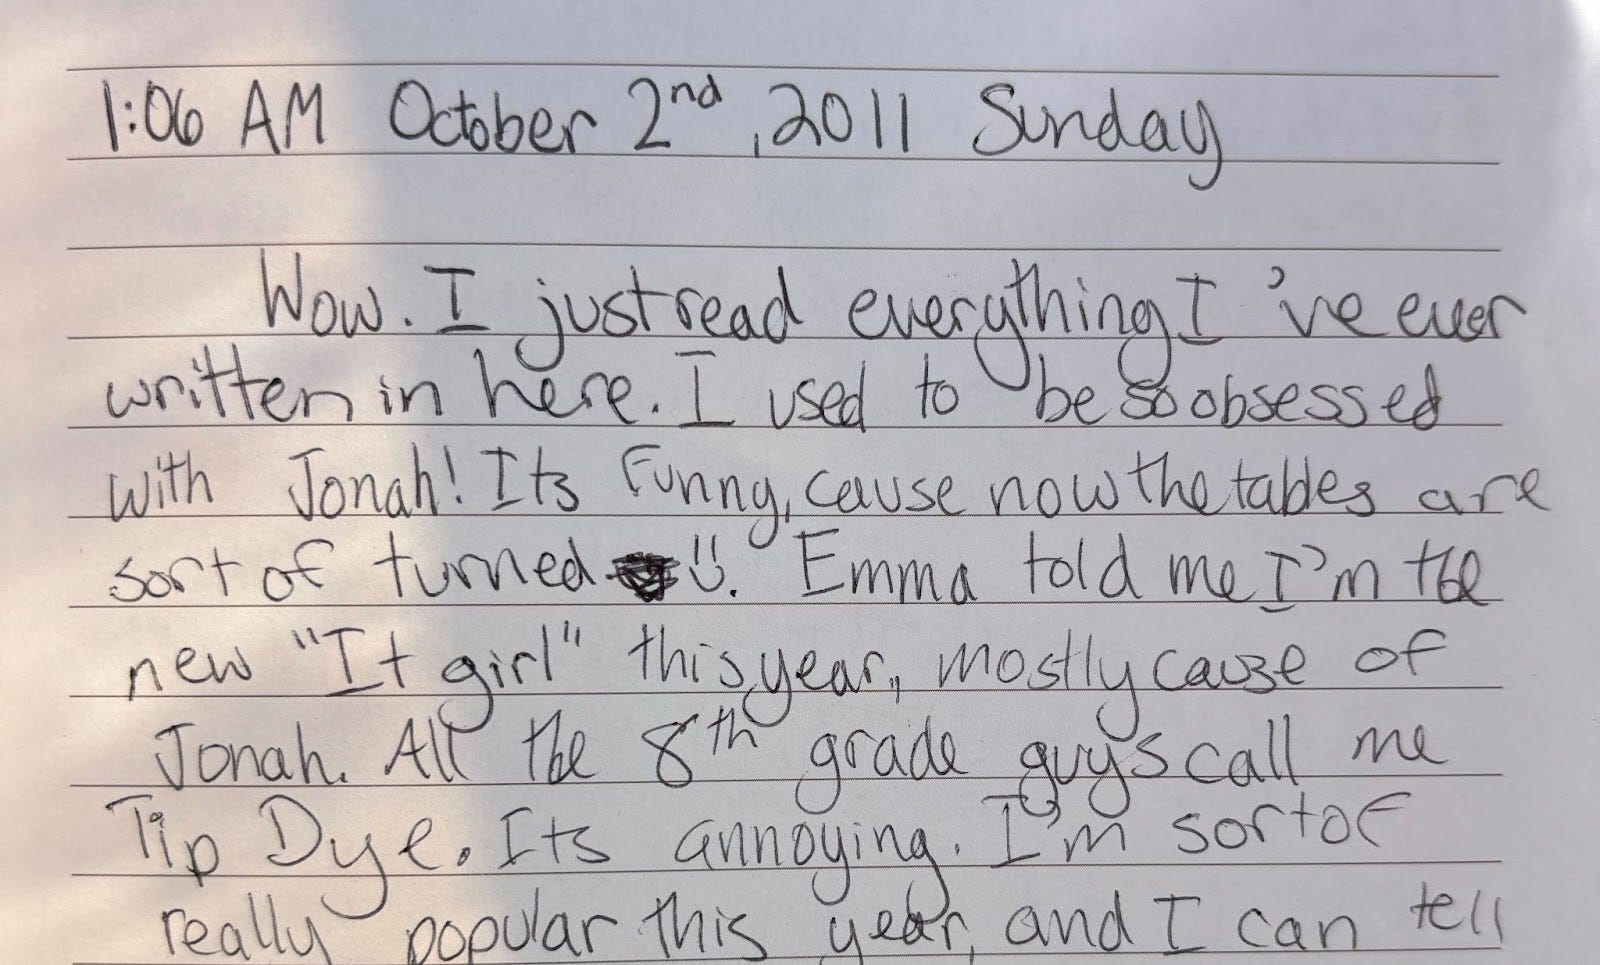 1:06 AM October 2nd, 2011 Sunday
Wow. I just read everything I've ever
written in here. I used to be so obsessed
with Jonah! Its funny, cause now the tables are
sort of turned :). Emma told me I'm the
new "It girl" this year, mostly cause of
Jonah. All the 8th grade guys call me
Tip Dye. Its annoying. I'm sort of
really popular this year, and I can tell